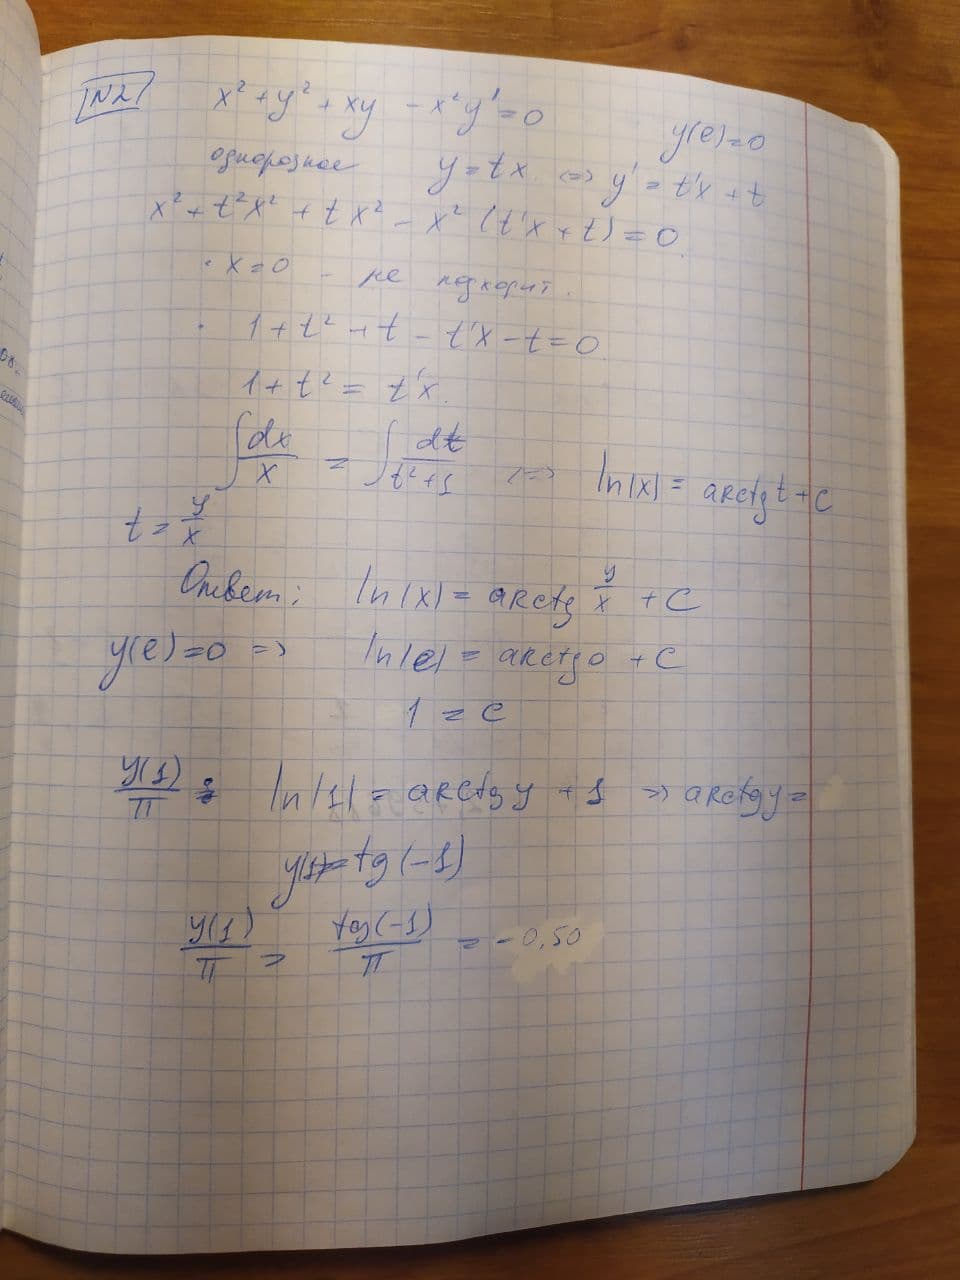 N2 x² + y² + xy - x²y' = 0 y(e)=0
однородное y = tx <=> y' = t'x + t
x² + t²x² + tx² - x² (t'x + t) = 0
· x = 0 - не подходит.
· 1 + t² + t - t'x - t = 0
1 + t² = t'x.
∫ dx/x = ∫ dt/(t²+1) <=> ln|x| = arctg t + C
t = y/x
Ответ: ln|x| = arctg y/x + C
y(e)=0 => ln|e| = arctg 0 + C
1 = C
y(1)/π : ln|1| = arctg y + 1 => arctg y =
y(1) = tg(-1)
y(1)/π = tg(-1)/π = -0,50